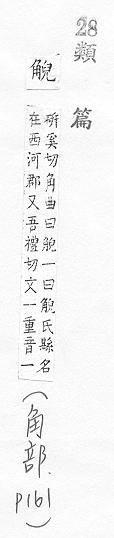 28
類篇
觬
研奚切角曲曰觬一曰觬氏縣名
在西河郡又吾禮切文一重音一
（角部.
p161）